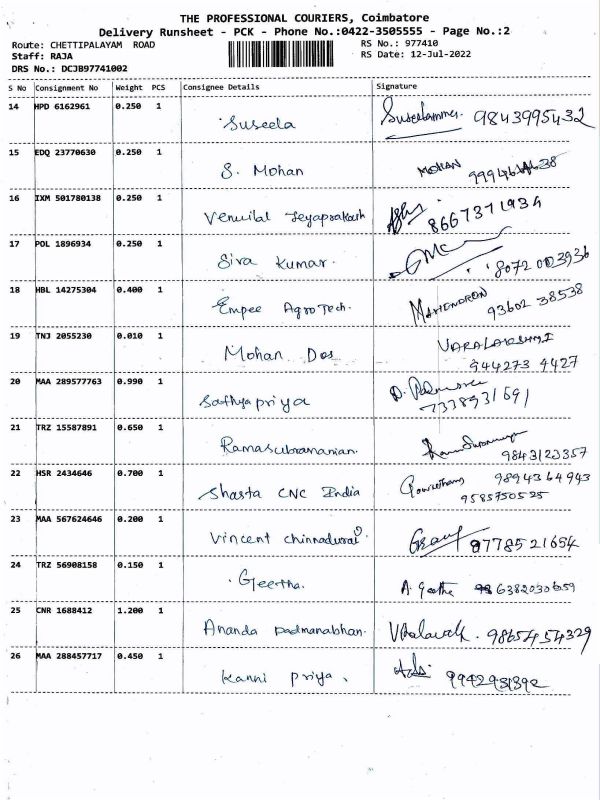 THE PROFESSIONAL COURIERS, Coimbatore
Delivery Runsheet - PCK - Phone No.:0422-3505555 - Page No.:2
Route: CHETTIPALAYAM ROAD
RS No.: 977410
Staff: RAJA
RS Date: 12-Jul-2022
DRS No.: DCJB97741002
S No Consignment No Weight PCS Consignee Details Signature
14 HPD 6162961 0.250 1 Suseela Suseelammal 9843995432
15 EDQ 23770630 0.250 1 S. Mohan MOHAN
16 IXM 501780138 0.250 1 Venuilal Jeyaprakash 8667371934
17 POL 1896934 0.250 1 Siva Kumar. GMC
18 HBL 14275304 0.400 1 Empee AgroTech. MAHENDRAN 93602 38538
19 TNJ 2055230 0.010 1 Mohan Dos VARALAKSHMI
944273 4427
20 MAA 289577763 0.990 1 Sathyapriya
7338931691
21 TRZ 15587891 0.650 1 Ramasubramanian.
9843123357
22 HSR 2434646 0.700 1 Shasta CNC India Gowtham 9894364943
9585750525
23 MAA 567624646 0.200 1 Vincent Chinnadurai 9778521654
24 TRZ 56908158 0.150 1 Geertha. A. Geetha 6382030659
25 CNR 1688412 1.200 1 Ananda Padmanabhan. 9865454329
26 MAA 288457717 0.450 1 Kanni Priya. 9942931392